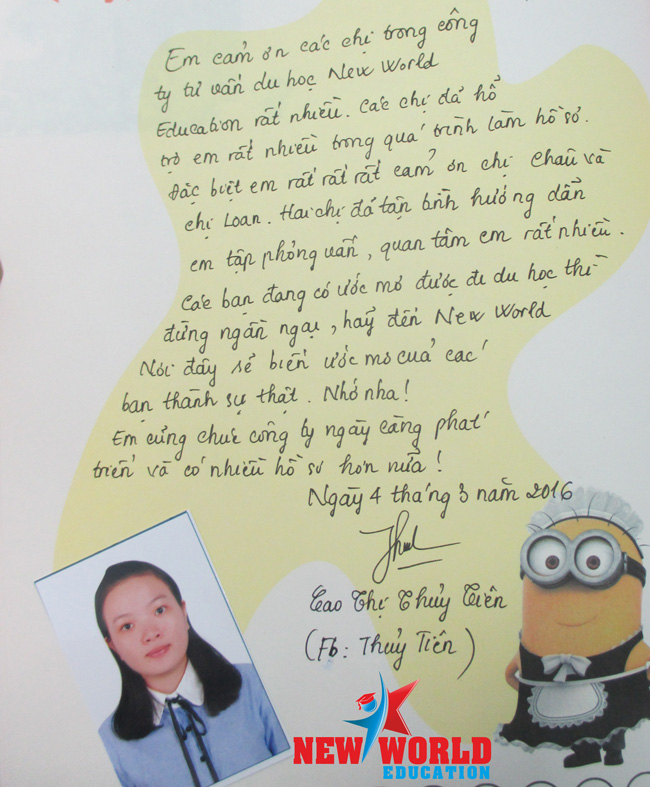 Em cảm ơn các chị trong công
ty tư vấn du học New World
Education rất nhiều. Các chị đã hổ
trợ em rất nhiều trong quá trình làm hồ sơ.
Đặc biệt em rất rất rất cảm ơn chị Châu và
chị Loan. Hai chị đã tận tình hướng dẫn
em tập phỏng vấn, quan tâm em rất nhiều.
Các bạn đang có ước mơ được đi du học thì
đừng ngần ngại, hãy đến New World
Nơi đây sẽ biến ước mơ của các
bạn thành sự thật. Nhớ nha!
Em cũng chúc công ty ngày càng phát
triển và có nhiều hồ sơ hơn nữa!
Ngày 4 tháng 3 năm 2016
Cao Thị Thủy Tiên
(Fb: Thủy Tiên)
NEW WORLD
EDUCATION